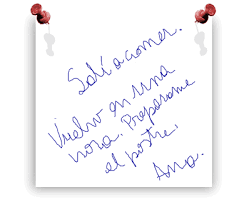 Salí a comer.
Vuelvo en una
hora. Preparame
el postre.
Ana.